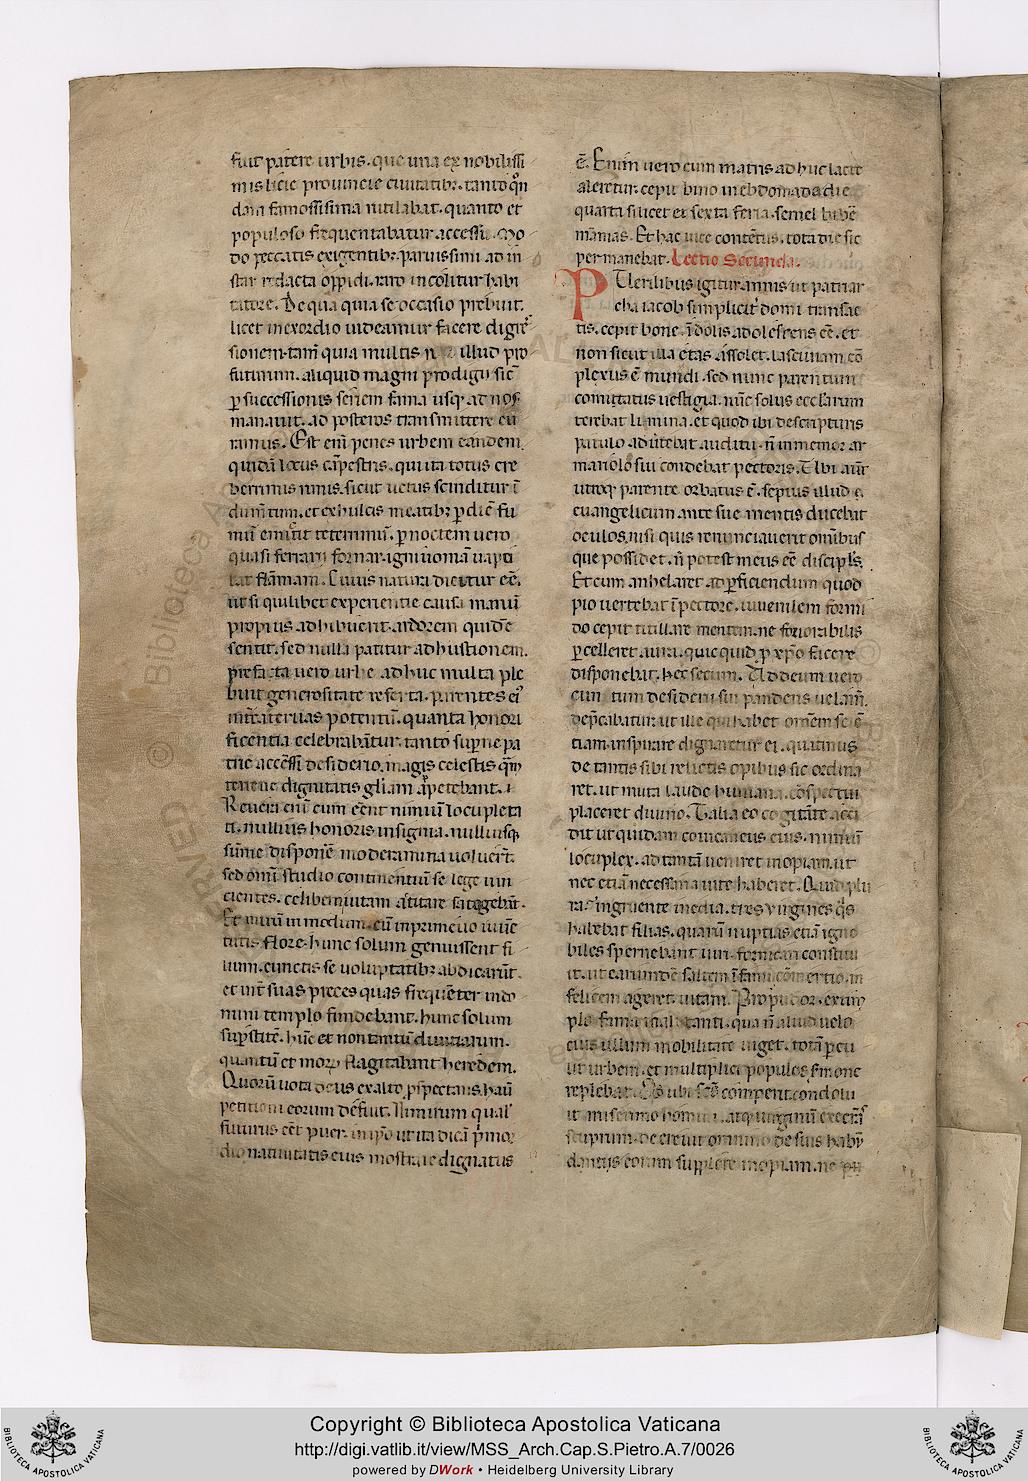 fuit patere urbis. que una ex nobilissi
mis licie prouincie ciuitatibꝫ. tanto qn̄
dam famosissima rutilabat. quanto et
populoso frequentabatur accessu. mo
do peccatis exigentibꝫ. paruissimi ad in
star redacta oppidi. raro incolitur habi
tatore. De qua quia se occasio prebuit.
licet in exordio uideamur facere digre
sionem. tam̄ quia multis illud pro
futurum. aliquid magni prodigii sic̄
ꝑ successionis seriem fama usqꝫ ad nos
manauit. ad posteros transmittere cu
ramus. Est eni penes urbem eandem
quidā locus cāpestris. qui ita totus cre
berrimis rimis. sicut uetus scinditur ī
dumtum. et ex hulcis meatibꝫ ꝑ diē fu
mū emittit teterrimū. ꝑ noctem uero
quasi ferrarii fornax igniuomā uapti
lat flāmam. Cuius natura dicitur eē.
ut si quilibet experientie causa manū
propius adhibuerit. ardorem quidē
sentit. sed nulla patitur adhustionem.
prefacta uero urbe adhuc multa ple
buit generositate referta. parentes ei
inter aeternas potentū. quanta honori
ficentia celebrabantur. tanto superne pa
trie accēssi desiderio. magis celestis quā
terrene dignitatis gliam appetebant.
Reuera enī cum eent nimiū locupleta
ti. nullius honoris insignia. nulliusqꝫ
sūme dispone moderamina uoluert.
sed omi studio continentiū se lege uin
cientes. celibem uitam actitare satagebāt.
Et mirū in modum. cū in primeuo iuuē
tutis flore. hunc solum genuissent fi
lium. cunctis se uoluptatibꝫ abdicarūt.
et int suas preces quas frequēter in do
mini templo fundebant. hunc solum
supstitē. hūc et non tantū diuitiarum.
quantū et morꝝ flagitabant heredem.
Quorū uota deus ex alto prospectans. hau
petitioni eorum defuit. Nimirum qual
futurus eēt puer. in ipso ut ita dicā primor
dio natiuitatis eius mostrare dignatus
ē. Enim uero cum matris adhuc lacte
aleretur. cepit bino in ebdomada die
quarta scilicet et sexta feria. semel biberē
māmas. Et hac uice contētus. tota die sic
permanebat. Lectio Secunda.
PUerilibus igitur annis ut patriar
cha iacob simplicit domi transac
tis. cepit bone īdolis adolescens eē. et
non sicut illa etas assolet. lasciuiam cō
plexus ē mundi. sed nunc parentum
comitatus uestigia. nūc solus ecclarum
terebat limina. et quod ibi descripturis
patulo aduertebat auditu. n̄ inmemor ar
mariolo sui condebat pectoris. Ubi aut
utroqꝫ parente orbatus ē. sepius illud
euangelicum ante sue mentis ducebat
oculos. nisi quis renunciauerit omībus
que possidet. n̄ potest meus eē discipls.
Et cum anhelaret ad ꝑficiendum quod
pio uertebat ī pectore. iuuenilem formi
do cepit titillare mentem. ne fauorabilis
ꝑcelleret aura. quicquid ꝓ xp̄o facere
disponebat. hec secum. Ad deum uero
cunctum desiderii sui pandens uelam.
depcabatur. ut ille qui habet omēm sciē
tiam inspirare dignaretur ei. quatinus
de tantis sibi relictis opibus sic ordina
ret. ut muta laude humana. cōspectui
placeret diuino. Talia eo cogitāte acci
dit ut quidam comcaneus eius. nimiū
locuplex. ad tantā ueniret inopiam. ut
nec etiā necessaria uite haberet. Quid plu
ra. ingruente inedia. tres uirgines qs
habebat filias. quarū nuptias etiā igno
biles spernebant uiri. fornicari constitu
it. ut earundē saltem īfami cōmertio. in
felicem ageret uitam. Pro pudor. exim
plo fama mali tanti. qua n̄ aliud uelo
cius ullum mobilitate uiget. totā ꝑcu
lit urbem. et multiplici populos sermone
replebat. Qd ubi scs comperit. condolu
it miserrimo homini. atqꝫ uirginū execrās
stuprum. decreuit omnino de suis habū
dantiis eorum supplere inopiam. ne